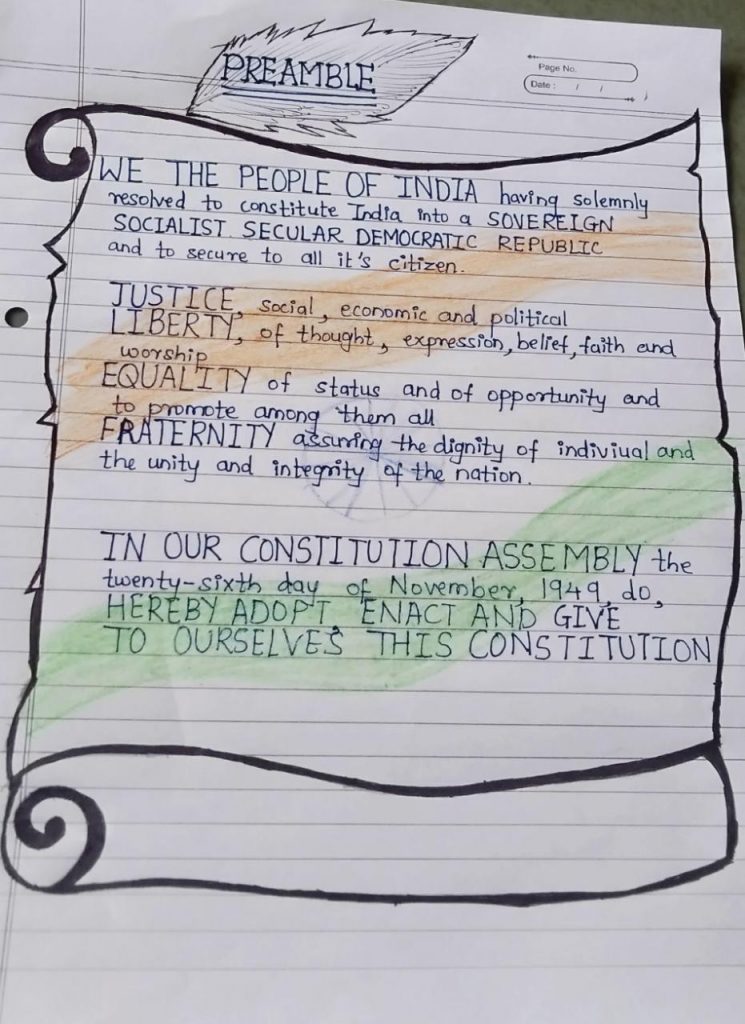 PREAMBLE
Page No.
Date : / /
WE THE PEOPLE OF INDIA having solemnly
resolved to constitute India into a SOVEREIGN
SOCIALIST SECULAR DEMOCRATIC REPUBLIC
and to secure to all it's citizen.
JUSTICE, social, economic and political
LIBERTY, of thought, expression, belief, faith and
worship
EQUALITY of status and of opportunity and
to promote among them all
FRATERNITY assuring the dignity of indiviual and
the unity and integrity of the nation.
IN OUR CONSTITUTION ASSEMBLY the
twenty-sixth day of November, 1949, do,
HEREBY ADOPT, ENACT AND GIVE
TO OURSELVES THIS CONSTITUTION